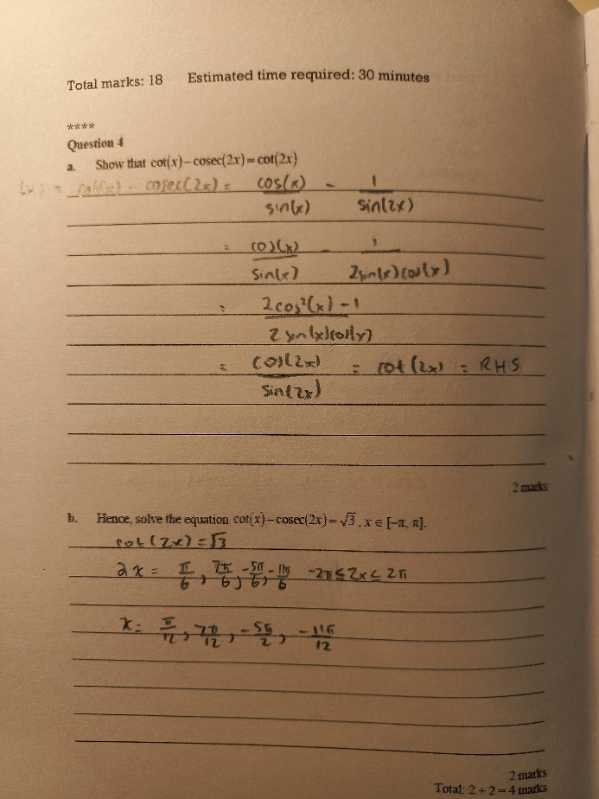 Total marks: 18 Estimated time required: 30 minutes
****
Question 4
a. Show that cot(x) – cosec(2x) = cot(2x)
= cot(x) - cosec(2x) = cos(x)/sin(x) - 1/sin(2x)
= cos(x)/sin(x) - 1/2sin(x)cos(x)
= 2cos²(x) - 1/2 sin(x)cos(x)
= cos(2x)/sin(2x) = cot(2x) = RHS
2 marks
b. Hence, solve the equation cot(x) – cosec(2x) = √3, x ∈ [–π, π].
cot(2x) = √3
2x = π/6, 7π/6, -5π/6, -11π/6 -2π ≤ 2x ≤ 2π
x = π/12, 7π/12, -5π/2, -11π/12
2 marks
Total: 2 + 2 = 4 marks